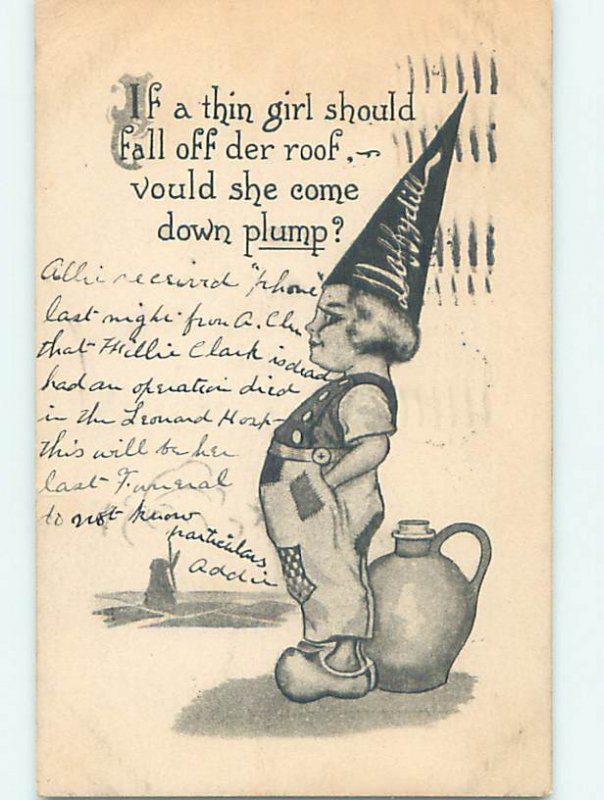 If a thin girl should
fall off der roof,~
vould she come
down plump?
Daffydill
Allie received "phone"
last night from A.
that Millie Clark is dead
had an operation died
in the Leonard Hosp-
this will be her
last Funeral
to not know
particulars
Addie